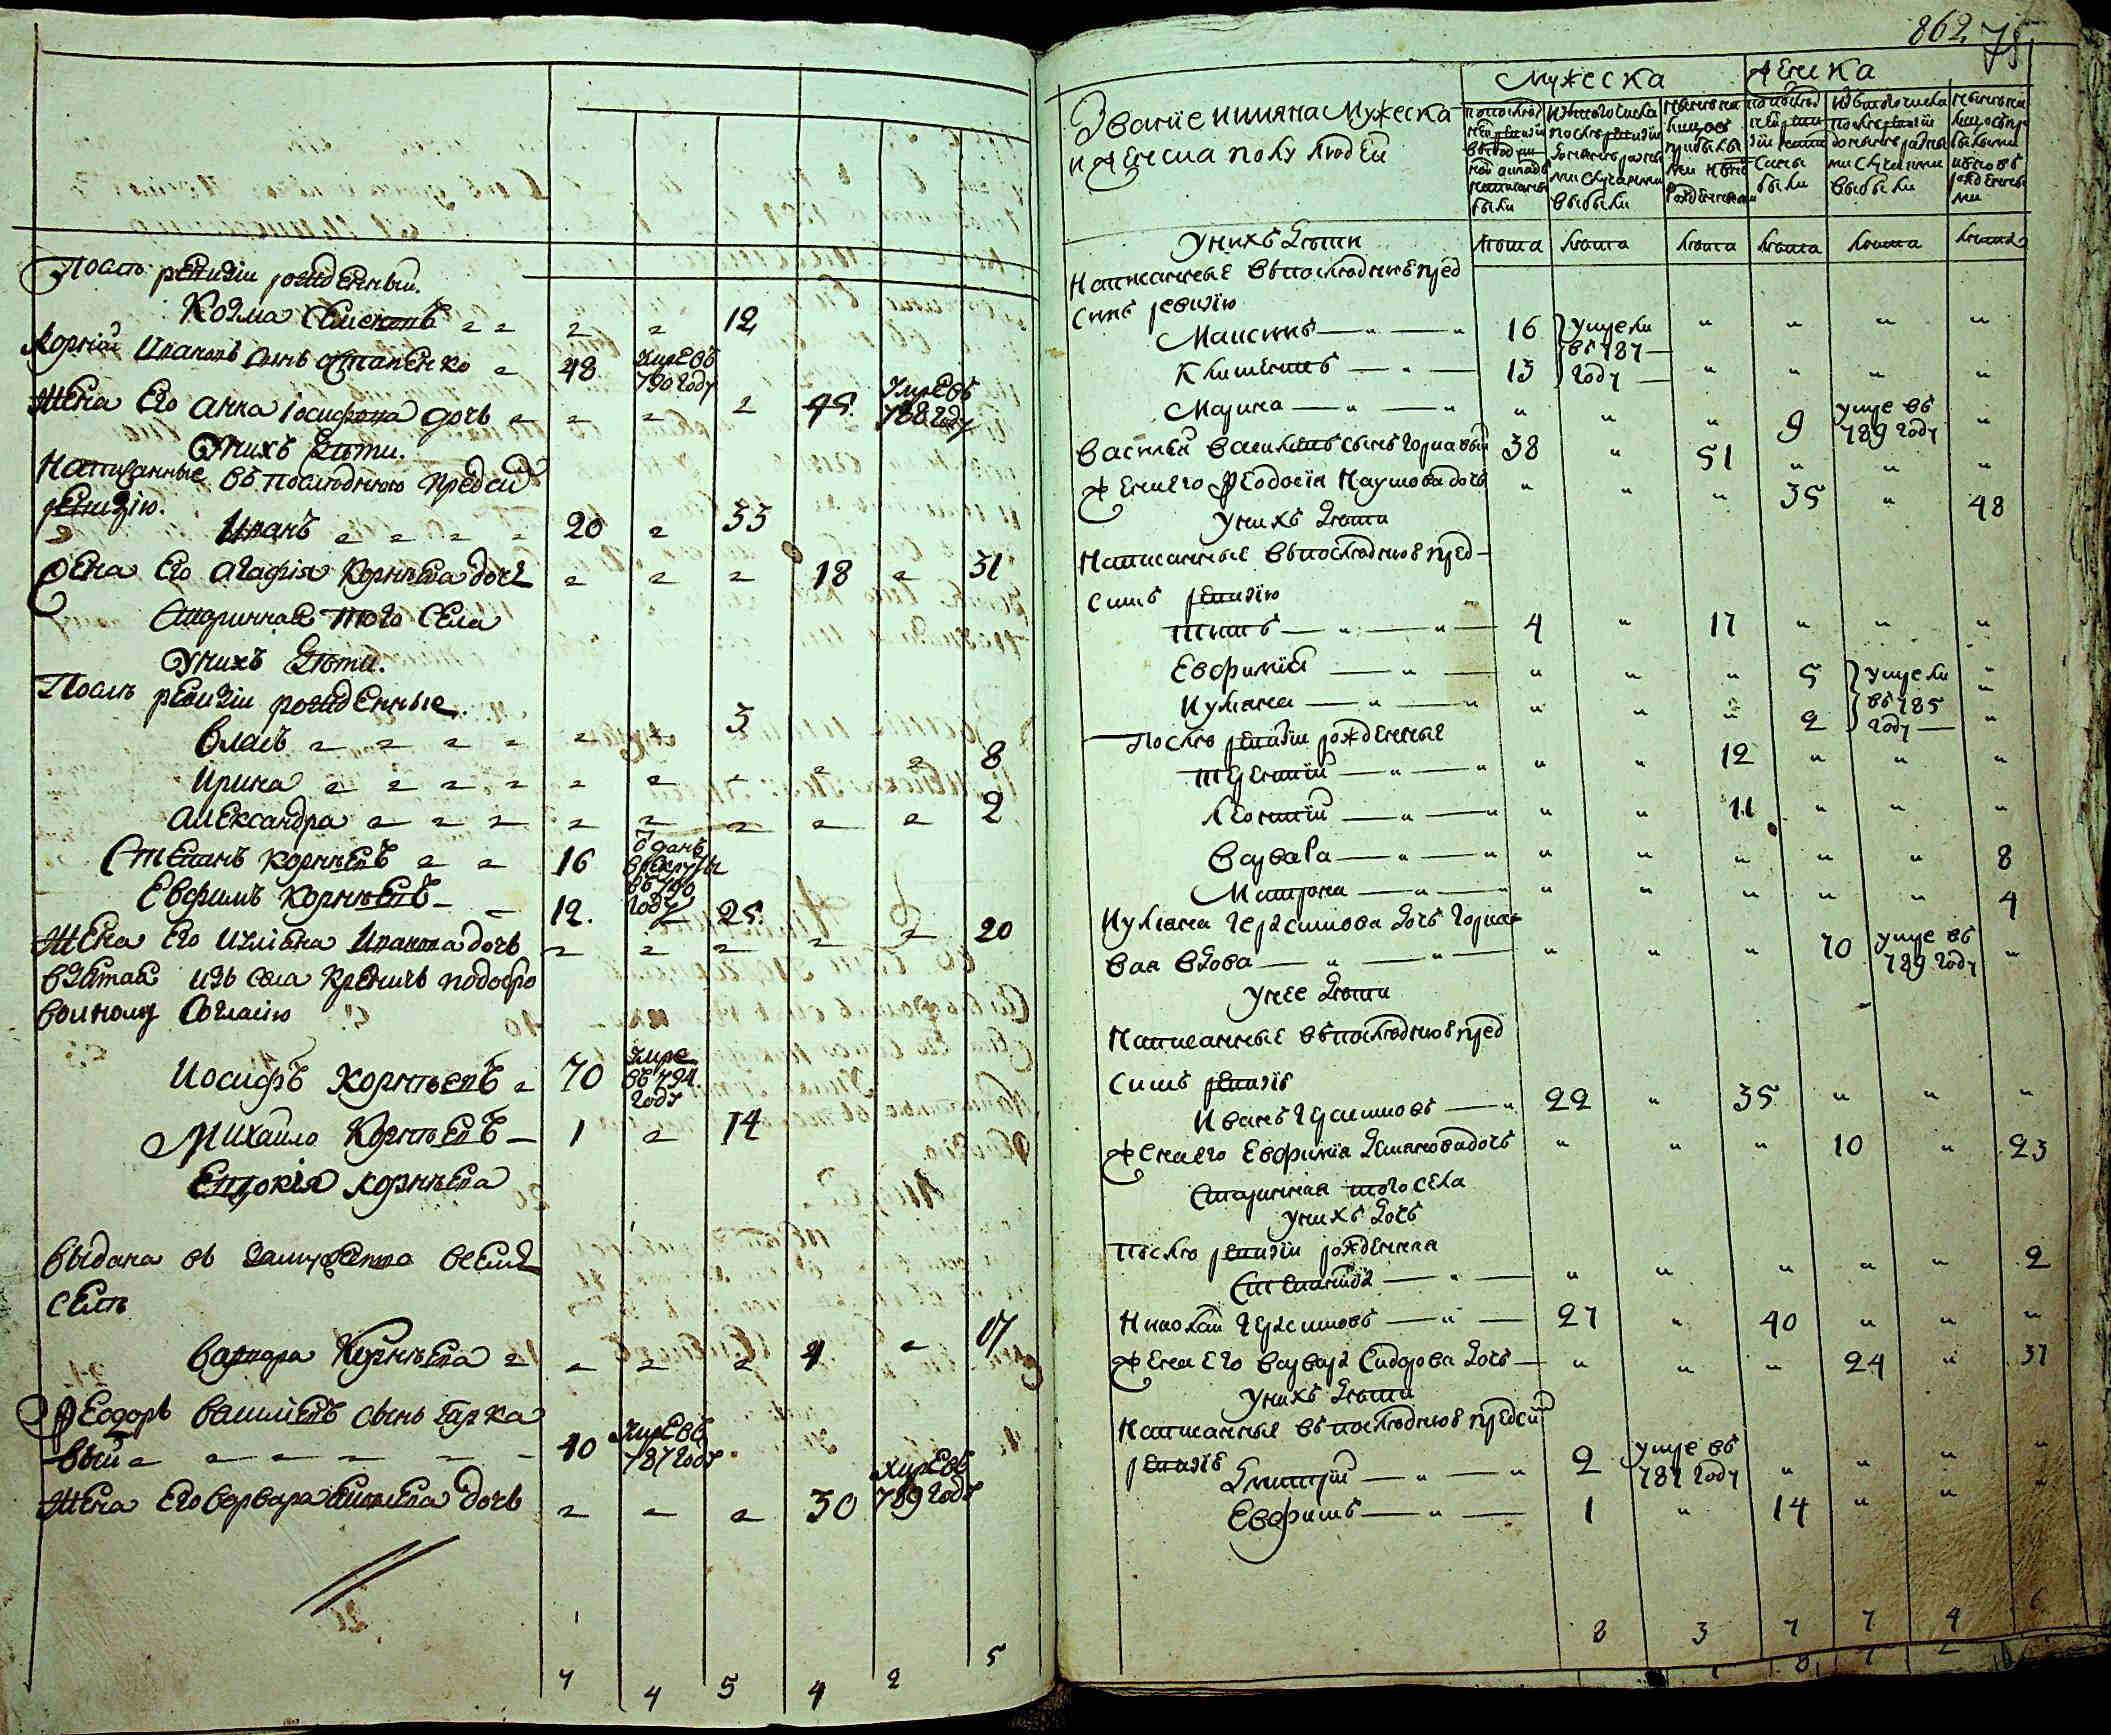 Послѣ ревизіи рожденный.
Козма Семеновъ 12
Корнѣй Ивановъ сынъ Остапенко 48 умре въ 790 году
Жена его Анна Іосифова дочь 45. умре въ 788 году
У нихъ дѣти.
Написанные въ последнюю предсию
ревизію.
Иванъ 20 33
Жена его Агафія Корнѣева дочь 18 31
Старинная того села
У нихъ дѣти.
Послѣ ревизіи рожденные
Власъ 3
Ирина 8
Александра 2
Степанъ Корнѣевъ 16 отданъ в рекруты въ 790 году
Евфимъ Корнѣевъ 12. 25.
Жена его Ульяна Иванова дочь 20
взятая изъ села по добро
волному согласію
Иосифъ Корнѣевъ 70 умре въ 794. году
Михайло Корнѣевъ 1 14
Евдокія Корнѣева
Выдана въ замужество в семъ
селѣ
Варвара Корнѣева 4 17
Ѳеодоръ Василіевъ сынъ Гарка
вый 40 умре въ 787 году
Жена его Варвара дочь 30 умре въ 789 году
7 4 5 4 2 5
862 75
Мужеска Женска
Званіе и имяна Мужеска
и Женска полу людей
У нихъ дѣти лѣта лѣта лѣта лѣта лѣта лѣта
Написанные въ последнюю пред
сим ревизію
Максимъ 16 умерли
Климентъ 13 въ 787 году
Марина 9 умре въ 789 году
Василей Василіевъ сынъ Горкавый 38 51
Жена его Ѳеодосія Наумова дочь 35 48
У нихъ дѣти
Написанные въ последнюю пред
симъ ревизію
Титъ 4 17
Евфимія 5 умерли
Ульяна 2 въ 785 году
Послѣ ревизіи рожденные
Терентій 12
Леонтій 11
Варвара 8
Матрона 4
Ульяна Герасимова дочь Горка
вая вдова 70 умре въ 789 году
У нее дѣти
Написанные въ последнюю пред
симъ ревизію
Иванъ Герасимовъ 22 35
Жена его Евфимія Демянова дочь 10 23
Старинная того села
У нихъ дочь
Послѣ ревизіи рожденна
Степанида 2
Николай Герасимовъ 27 40
Жена его Варвара Сидорова дочь 24 37
У нихъ дѣти
Написанные въ последнюю предсим
ревизію
Дмитрій 2 умре въ 787 году
Евфимъ 1 14
8 3 7 7 4 6